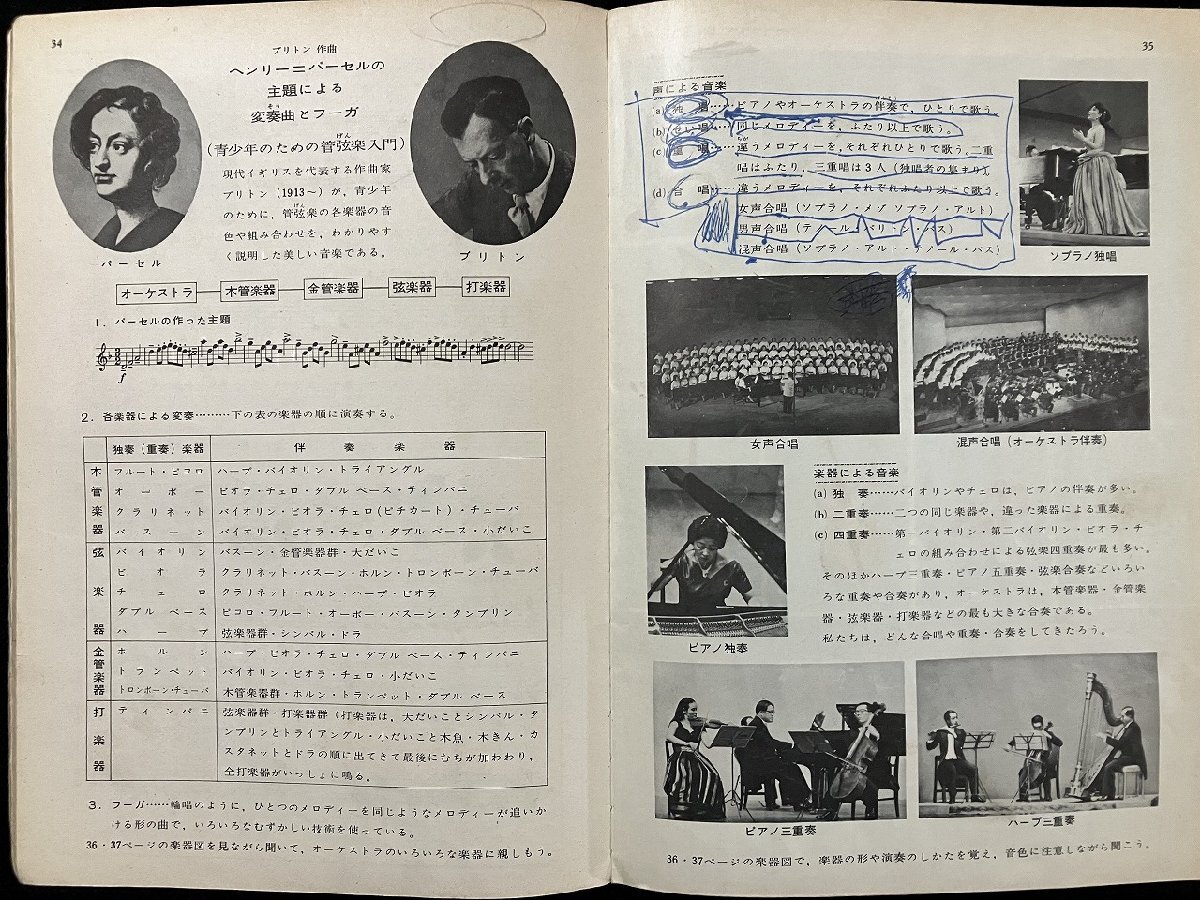 34
ブリトン 作曲
ヘンリー=パーセルの
主題による
変奏曲とフーガ
(青少年のための管弦楽入門)
現代イギリスを代表する作曲家
ブリトン (1913〜) が, 青少年
のために, 管弦楽の各楽器の音
色や組み合わせを, わかりやす
く説明した美しい音楽である。
パーセル
ブリトン
オーケストラ 木管楽器 金管楽器 弦楽器 打楽器
1. パーセルの作った主題
2. 各楽器による変奏………下の表の楽器の順に演奏する。
独奏(重奏)楽器 伴奏楽器
木管楽器
フルート・ピコロ ハープ・バイオリン・トライアングル
オーボー ビオラ・チェロ・ダブル ベース・ティンパニ
クラリネット バイオリン・ビオラ・チェロ(ピチカート)・チューバ
バスーン バイオリン・ビオラ・チェロ・ダブル ベース・小だいこ
弦楽器
バイオリン バスーン・金管楽器群・大だいこ
ビオラ クラリネット・バスーン・ホルン・トロンボーン・チューバ
チェロ クラリネット・ホルン・ハープ・ビオラ
ダブル ベース ピコロ・フルート・オーボー・バスーン・タンブリン
ハープ 弦楽器群・シンバル・ドラ
金管楽器
ホルン ハープ・ビオラ・チェロ・ダブル ベース・ティンパニ
トランペット バイオリン・ビオラ・チェロ・小だいこ
トロンボーン・チューバ 木管楽器群・ホルン・トランペット・ダブル ベース
打楽器
ティンパニ 弦楽器群・打楽器群 (打楽器は, 大だいことシンバル・タ
ンブリンとトライアングル・小だいこと木魚・木きん・カ
スタネットとドラの順に出てきて最後にむちが加わり,
全打楽器がいっしょに鳴る。
3. フーガ……輪唱のように, ひとつのメロディーを同じようなメロディーが追いか
ける形の曲で, いろいろなむずかしい技術を使っている。
36・37ページの楽器図を見ながら聞いて, オーケストラのいろいろな楽器に親しもう。
35
声による音楽
(a) 独唱……ピアノやオーケストラの伴奏で, ひとりで歌う。
(b) せい唱……同じメロディーを, ふたり以上で歌う。
(c) 重唱……違うメロディーを, それぞれひとりで歌う, 二重
唱はふたり, 三重唱は3人 (独唱者の集まり)。
(d) 合唱……違うメロディーを, それぞれふたり以上で歌う。
女声合唱 (ソプラノ・メゾ ソプラノ・アルト)
男声合唱 (テノール・バリトン・バス)
混声合唱 (ソプラノ・アルト・テノール・バス)
ソプラノ独唱
女声合唱
混声合唱 (オーケストラ伴奏)
楽器による音楽
(a) 独奏……バイオリンやチェロは, ピアノの伴奏が多い。
(b) 二重奏……二つの同じ楽器や, 違った楽器による重奏。
(c) 四重奏……第一バイオリン・第二バイオリン・ビオラ・チ
ェロの組み合わせによる弦楽四重奏が最も多い。
そのほかハープ三重奏・ピアノ五重奏・弦楽合奏などいろい
ろな重奏や合奏があり, オーケストラは, 木管楽器・金管楽
器・弦楽器・打楽器などの最も大きな合奏である。
私たちは, どんな合唱や重奏・合奏をしてきたろう。
ピアノ独奏
ピアノ三重奏
ハープ三重奏
36・37ページの楽器図で, 楽器の形や演奏のしかたを覚え, 音色に注意しながら聞こう。